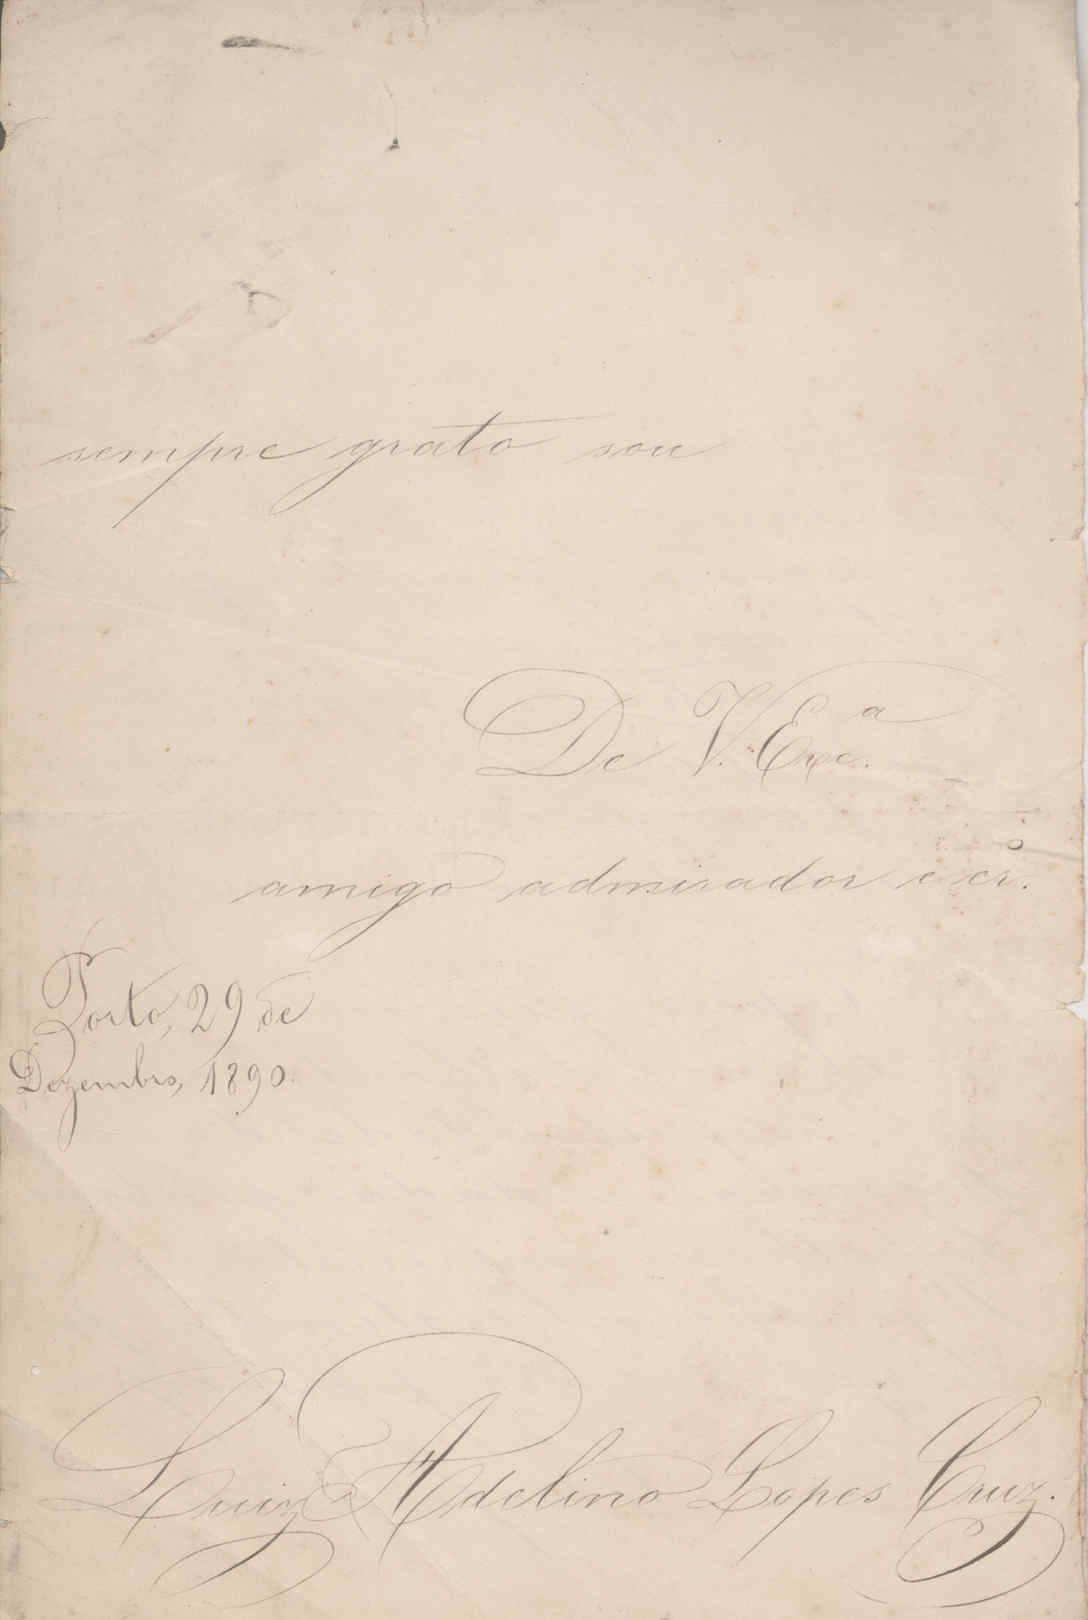 sempre grato sou
De V. Exc.ª
amigo admirador e cr.º
Porto, 29 de
Dezembro, 1890.
Luiz Adelino Lopes Cruz.